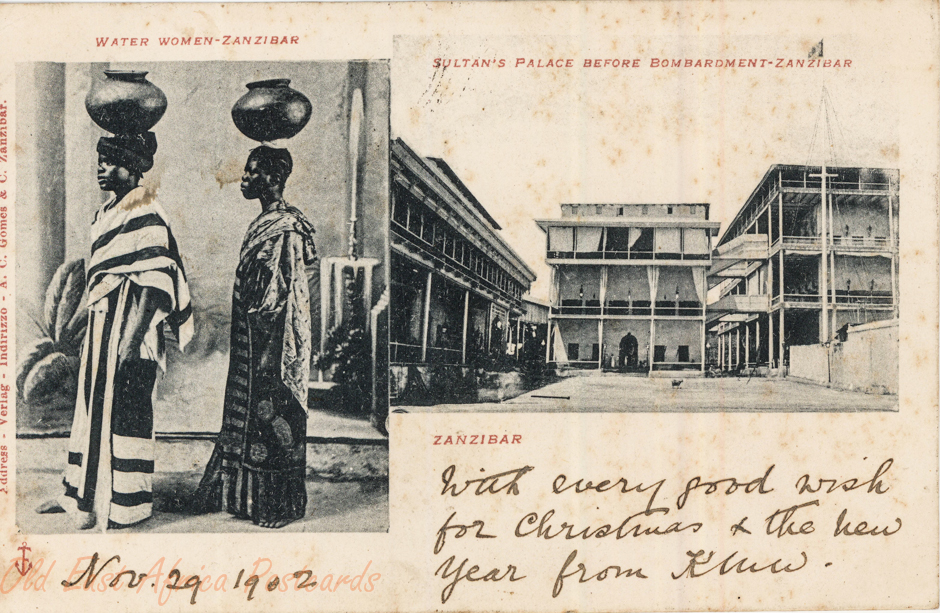 WATER WOMEN-ZANZIBAR
SULTAN'S PALACE BEFORE BOMBARDMENT-ZANZIBAR
Address - Verlag - Indirizzo - A. C. Gomes & C. Zanzibar.
ZANZIBAR
With every good wish
for Christmas & the new
Year from
Nov. 29 1902
Old East Africa Postcards